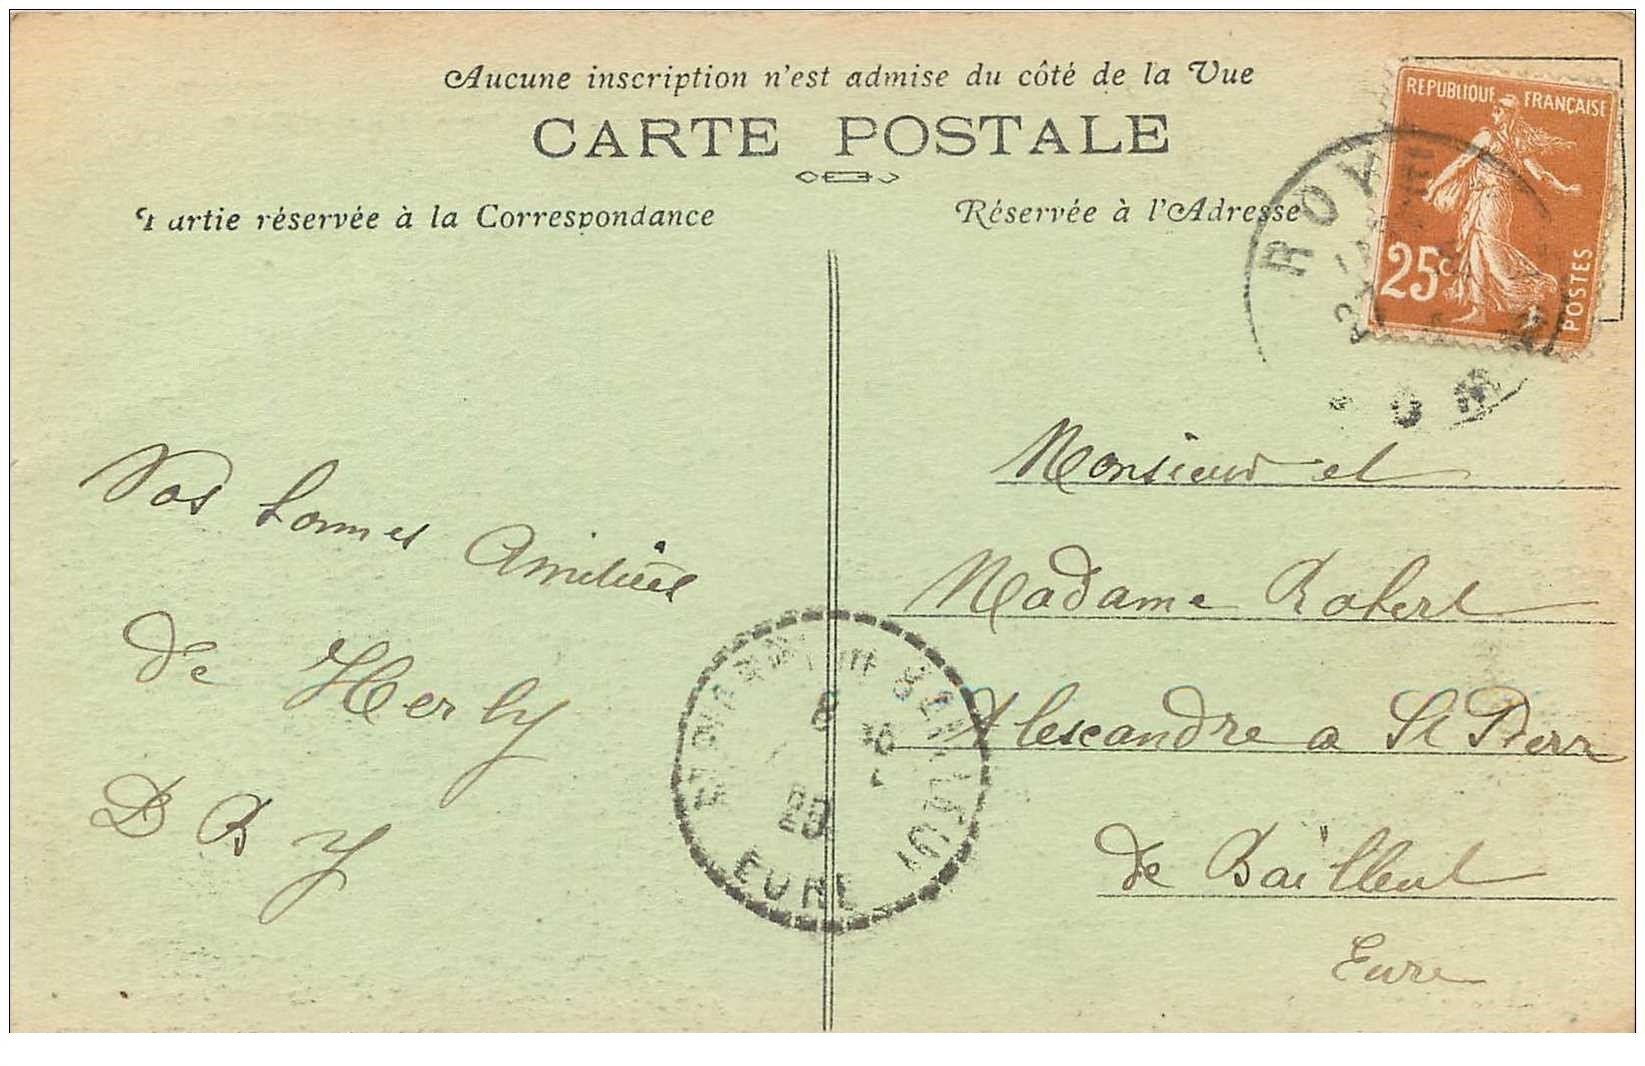 Aucune inscription n'est admise du côté de la Vue
CARTE POSTALE
Partie réservée à la Correspondance
Réservée à l'Adresse
REPUBLIQUE FRANÇAISE
25c
POSTES
ROY
Vos bonnes Amitiées
de Herly
D B Y
Monsieur et
Madame Robert
Alexandre a St Pierr
de Bailleul
Eure
EURE